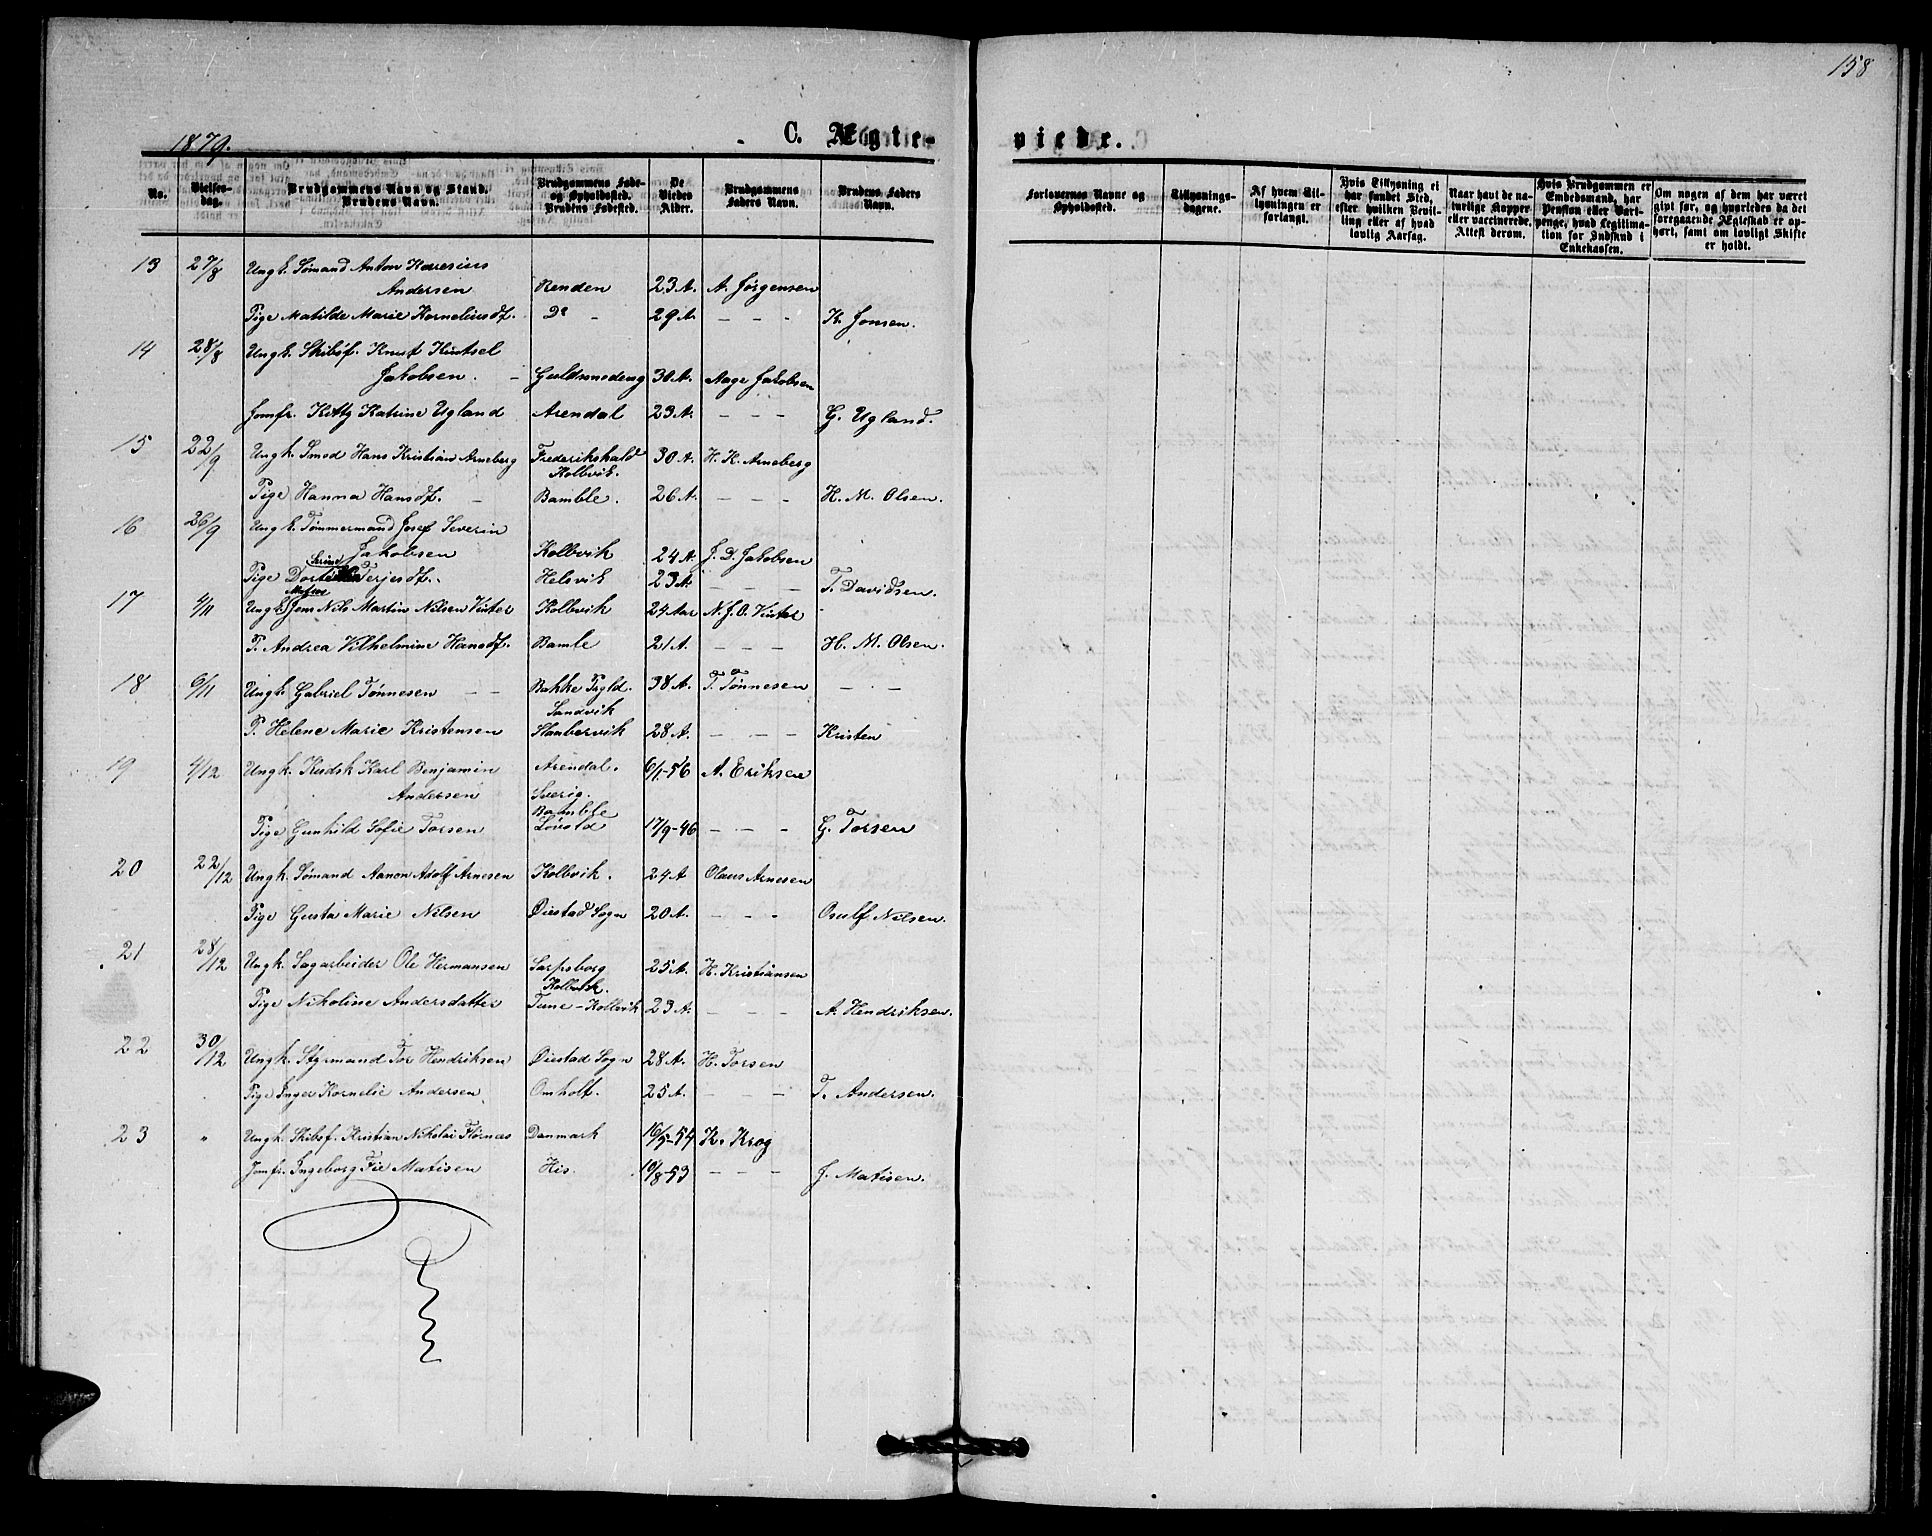 158
1879.
C. Ægte-
viede.
No.
Vielses-
dag.
Brudgommens Navn og Stand.
Brudens Navn.
Brudgommens Føde-
og Opholdssted.
Brudens Fødested.
De
Viedes
Alder.
Brudgommens
Faders Navn.
Brudens Faders
Navn.
Forlovernes Navne og
Opholdssted.
Tillysnings-
dagene.
Af hvem Til-
lysningen er
forlangt.
Hvis Tillysning ei
har fundet Sted,
efter hvilken Bevil-
ling eller af hvad
lovlig Aarsag.
Naar havt de na-
turlige Kopper
eller vaccinerede.
Attest derom.
Hvis Brudgommen er
Embedsmand, har
Pension eller Vart-
penge, hvad Legitima-
tion for Indskud i
Enkekassen.
Om nogen af dem har været
gift før, og hvorledes da det
foregaaende Ægteskab er op-
hørt, samt om lovligt Skifte
er holdt.
13 27/8 Ungk. Sømand Anton
Andersen Renden 23 A. A. Jørgensen
Pige Matilde Marie Kornelius df. Do - 29 A. - - - K. Jonsen.
14 28/8 Ungk. Skibsf. Knut
Jakobsen. - Guldsmedeng 30 A. Aage Jakobsen
Jomfr. Kitty Katrine Ugland Arendal 23 A. - - - G. Ugland.
15 22/9 Ungk. Smed Hans Kristian Arneberg Frederikshald 30 A. H. K. Arneberg
Kolbvik.
Pige Hanna Hansdf. - Bamble. 26 A. - - - H. M. Olsen.
16 26/9 Ungk. Tømmermand Josef Severin
Jakobsen Kolbvik 24 A. J. D. Jakobsen
Serine
Pige Terjesdf. Helsvik 23 A. - - - T. Davidsen.
17 4/11 Ungk. Nils Martin Nilsen Vinter Kolbvik 24 Aar N. J. O. Vinter
P. Andrea Vilhelmine Hansdf. Bamle 21 A. - - - H. M. Olsen.
18 6/11 Ungk. Gabriel Tønnesen - - Bakke 38 A. T. Tønnesen - - -
Sandvik
P. Helene Marie Kristensen 28 A. - - - Kristen
19 4/12 Ungk. Kudsk Karl Benjamin Arendal. 6/1-56 A. Eriksen
Andersen Sverig.
Bamble
Pige Gunhild Sofie Torsen 17/9-46 - - - G. Torsen
20 22/12 Ungk. Sømand Aanon Adolf Arnesen Kolbvik. 24 A Olaus Arnesen
Pige Gusta Marie Nilsen Øiestad Sogn 20 A. - - - Osulf Nilsen.
21 28/12 Ungk. Sagarbeider Ole Hermansen Sarpsborg 25 A. H. Kristiansen
Kolbvik.
Pige Nikoline Andersdatter Tune - Kolbvik 23 A. - - - A. Hendriksen.
22 30/12 Ungk. Styrmand Tor Hendriksen Øiestad Sogn 28 A. H. Torsen
Pige Inger Kornelie Andersen Omholt. 25 A. - - - T. Andersen.
23 " Ungk. Skibsf. Kristian Nikolai Danmark 16/5-54 K. Krog
Jomfr. Ingeborg Fie Matisen His. 10/8-53 - - - J. Matisen.